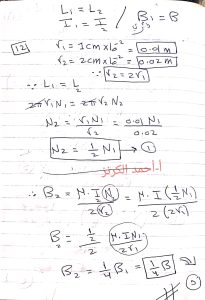 L₁ = L₂
I₁ = I₂ / B₁ = B
12
r₁ = 1cm x10⁻² = 0.01m
r₂ = 2cm x10⁻² = 0.02m
∴ r₂ = 2r₁
∵ L₁ = L₂
2πr₁N₁ = 2πr₂N₂
N₂ = r₁N₁ / r₂ = 0.01 N₁ / 0.02
N₂ = ½ N₁ → ①
أ.احمد
∴ B₂ = μ.I₂N₂ / 2r₂ = μ.I(½N₁) / 2(2r₁)
B₂ = ½ / 2 (μ.IN₁ / 2r₁)
B₂ = ¼ B₁ = ¼ B
#